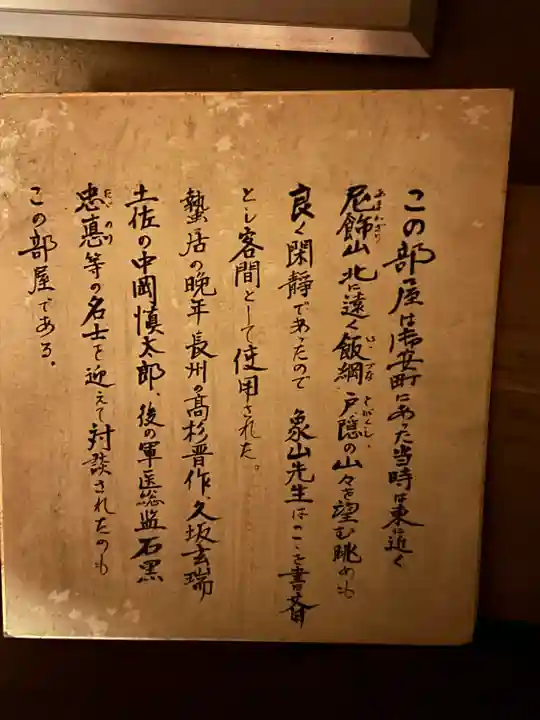 この部屋は御安町にあった当時は東に近く
尼飾山北に遠く飯綱戸隠の山々を望む眺めも
良く閑静であったので 象山先生はここを書斎
とし客間として使用された。
蟄居の晩年長州の高杉晋作、久坂玄瑞
土佐の中岡慎太郎、後の軍医総監石黒
忠悳等の名士を迎えて対談されたのも
この部屋である。